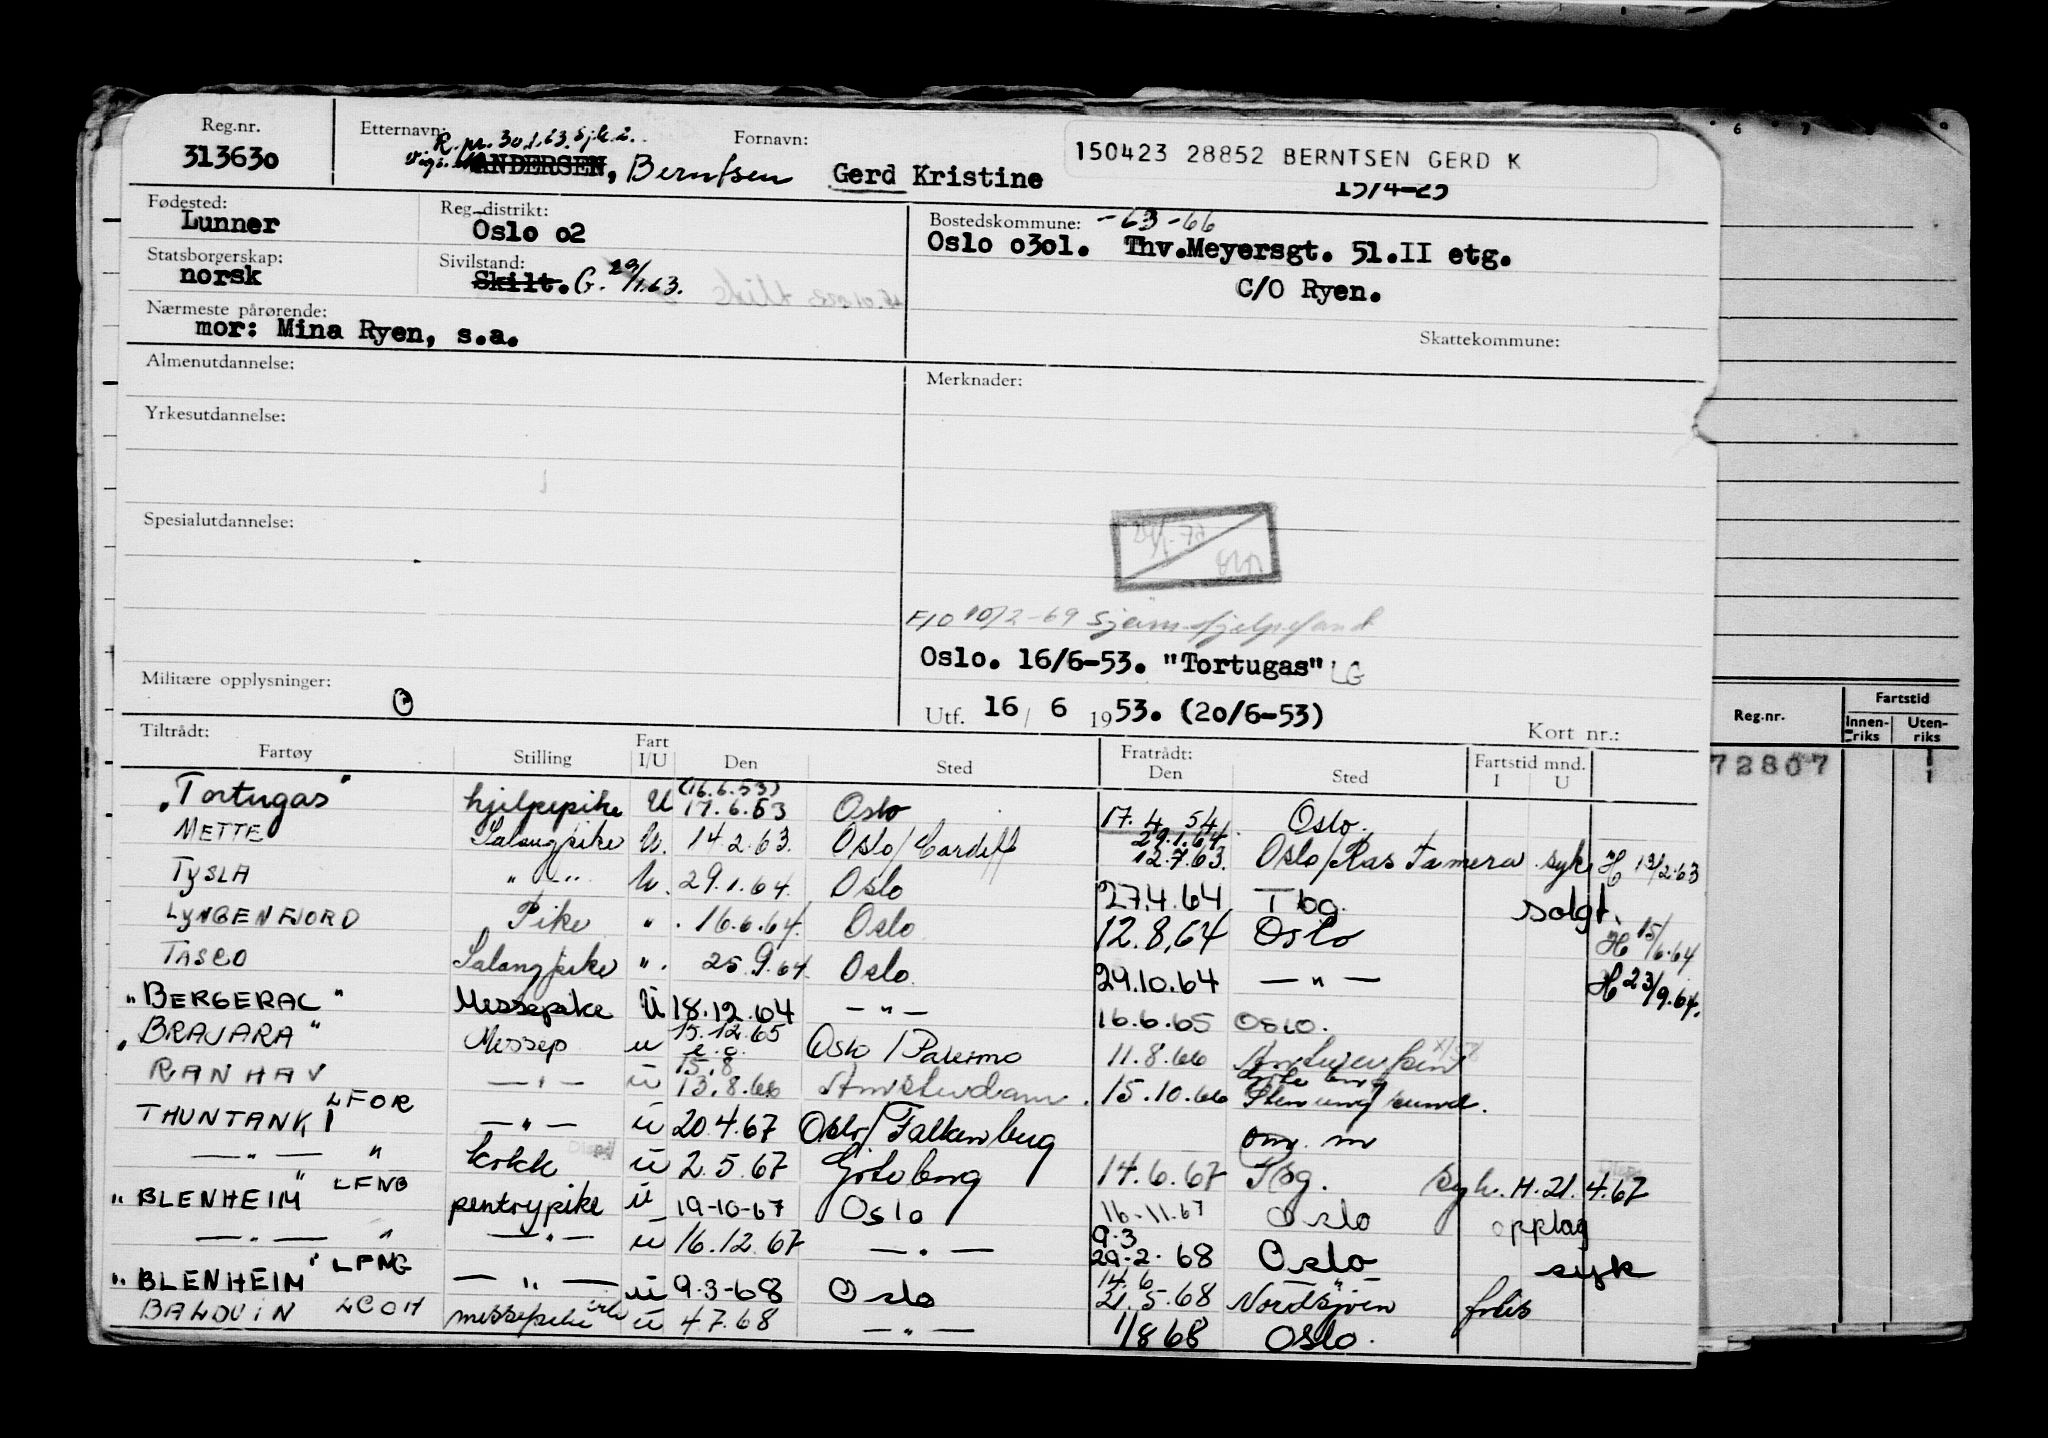 Reg.nr. Etternavn: R. pr. 30.1.63. Sjk 2. Fornavn: 150423 28852 BERNTSEN GERD K
313630 ANDERSEN, Berntsen Gerd Kristine 15/4-23
Fødested: Reg.-distrikt: Bostedskommune: -63-66
Lunner Oslo 02 Oslo 0301. Thv.Meyersgt. 51.II etg.
Statsborgerskap: Sivilstand:
norsk Skilt. G. 29/1.63. C/O Ryen.
Nærmeste pårørende:
mor: Mina Ryen, s.a. Skattekommune:
Almenutdannelse: Merknader:
Yrkesutdannelse:
Spesialutdannelse:
F/O 10/2-69 Sjøm. hjelpefond
Oslo. 16/6-53. "Tortugas" LG
Militære opplysninger:
Utf. 16/ 6 1953. (20/6-53)
Kort nr.:
Tiltrådt: Fratrådt:
Fartøy Stilling Fart I/U Den Sted Den Sted Fartstid mnd. I U
"Tortugas" hjelpepike U (16.6.53) 17.6.53 Oslo 17. 4. 54 Oslo.
METTE Salongpike U. 14.2.63. Oslo/Cardiff 29.1.64 12.7.63. Oslo/Ras Tamera syk H 13/2.63
TYSLA " -"- U. 29.1.64. Oslo 27.4.64 Tbg. solgt.
LYNGENFJORD Pike ". 16.6.64. Oslo 12.8.64 Oslo H 15/6.64
TASCO Salongpike ". 25.9.64. Oslo. 29.10.64 — " — H 23/9.64.
"BERGERAC" Messepike U 18.12.64 — " — 16.6.65 OSLO.
"BRAJARA" Messep u 15.12.65 Oslo / Palermo 11.8.66
RANHAV — " — u 15.8 13.8.66 Amsterdam. 15.10.66 Stenungsund.
THUNTANK 1 LFOR — " — u 20.4.67 Oslo/Falkenberg Omm. m
— " — " kokk u 2.5.67 Göteborg 14.6.67 Tbg. Syk. H. 21.4.67
"BLENHEIM" LFNG pentrypike u 19-10-67 Oslo 16-11.67 Oslo opplag
— " — " — " — u 16.12.67 — " — 9.3 29-2-68 Oslo syk
"BLENHEIM" LFNG — " — u 9.3-68 Oslo 14.6 21.5.68 — " — Nordsjøen
BALDUIN LCOH messepike u 4.7.68 — " — 1/8 68 Oslo.
Reg.nr. Fartstid
Innen-riks Uten-riks
72807